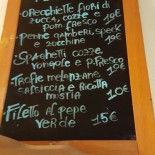 • ORECCHIETTE FIORI DI
ZUCCA, COZZE e
POM FRESCO 10€
• Penne gamberi, speck
e zucchine 10€
• Spaghetti cozze
vongole e P. FRESCO
10€
• melanzane,
salsiccia e ricotta
10€
Filetto al pepe
verde 15€